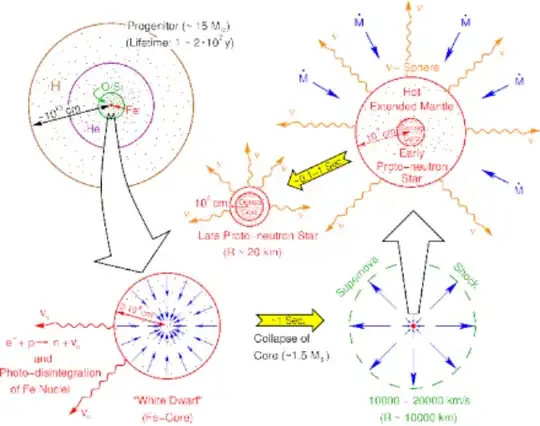 Progenitor (~ 15 M☉)
(Lifetime: 1 ~ 2·10⁷ y)
H
O/Si
Fe
He
Ṁ
Ṁ
Ṁ
Ṁ
Ṁ
ν
ν
ν
ν
ν
ν
ν
ν−Sphere
Hot
Extended Mantle
Early
Proto−neutron
Star
~0.1−1 Sec.
ν
ν
ν
ν
ν
Core
Late Proto−neutron Star
(R ~ 20 km)
νₑ
e⁻+ p → n + νₑ
and
Photo−disintegration
of Fe Nuclei
νₑ
"White Dwarf"
(Fe−Core)
~1 Sec.
Collapse of
Core (~1.5 M☉)
Supernova
Shock
10000 − 20000 km/s
(R ~ 10000 km)